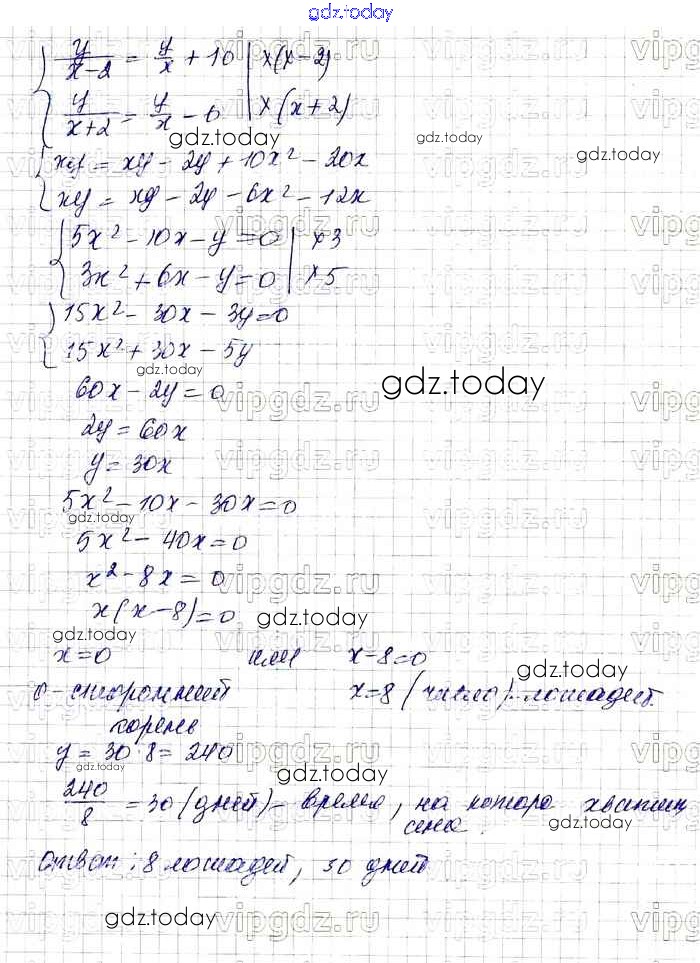 gdz.today
y/(x-2) = y/x + 10 | ×(x-2)
y/(x+2) = y/x - 6 | ×(x+2)
gdz.today
gdz.today
xy = xy - 2y + 10x² - 20x
gdz.today
xy = xy - 2y - 6x² - 12x
5x² - 10x - y = 0 | ×3
3x² + 6x - y = 0 | ×5
15x² - 30x - 3y = 0
15x² + 30x - 5y
gdz.today
60x - 2y = 0
gdz.today
2y = 60x
y = 30x
5x² - 10x - 30x = 0
gdz.today
5x² - 40x = 0
x² - 8x = 0
x(x-8) = 0
gdz.today
gdz.today
x = 0 или x-8=0
gdz.today
0 - сторонний x=8 (число) лошадей.
корень
y = 30 · 8 = 240
gdz.today
gdz.today
240/8 = 30 (дней) - время, на которо хватит
сена.
gdz.today
Ответ: 8 лошадей, 30 дней
gdz.today
gdz.today
vipgdz.ru